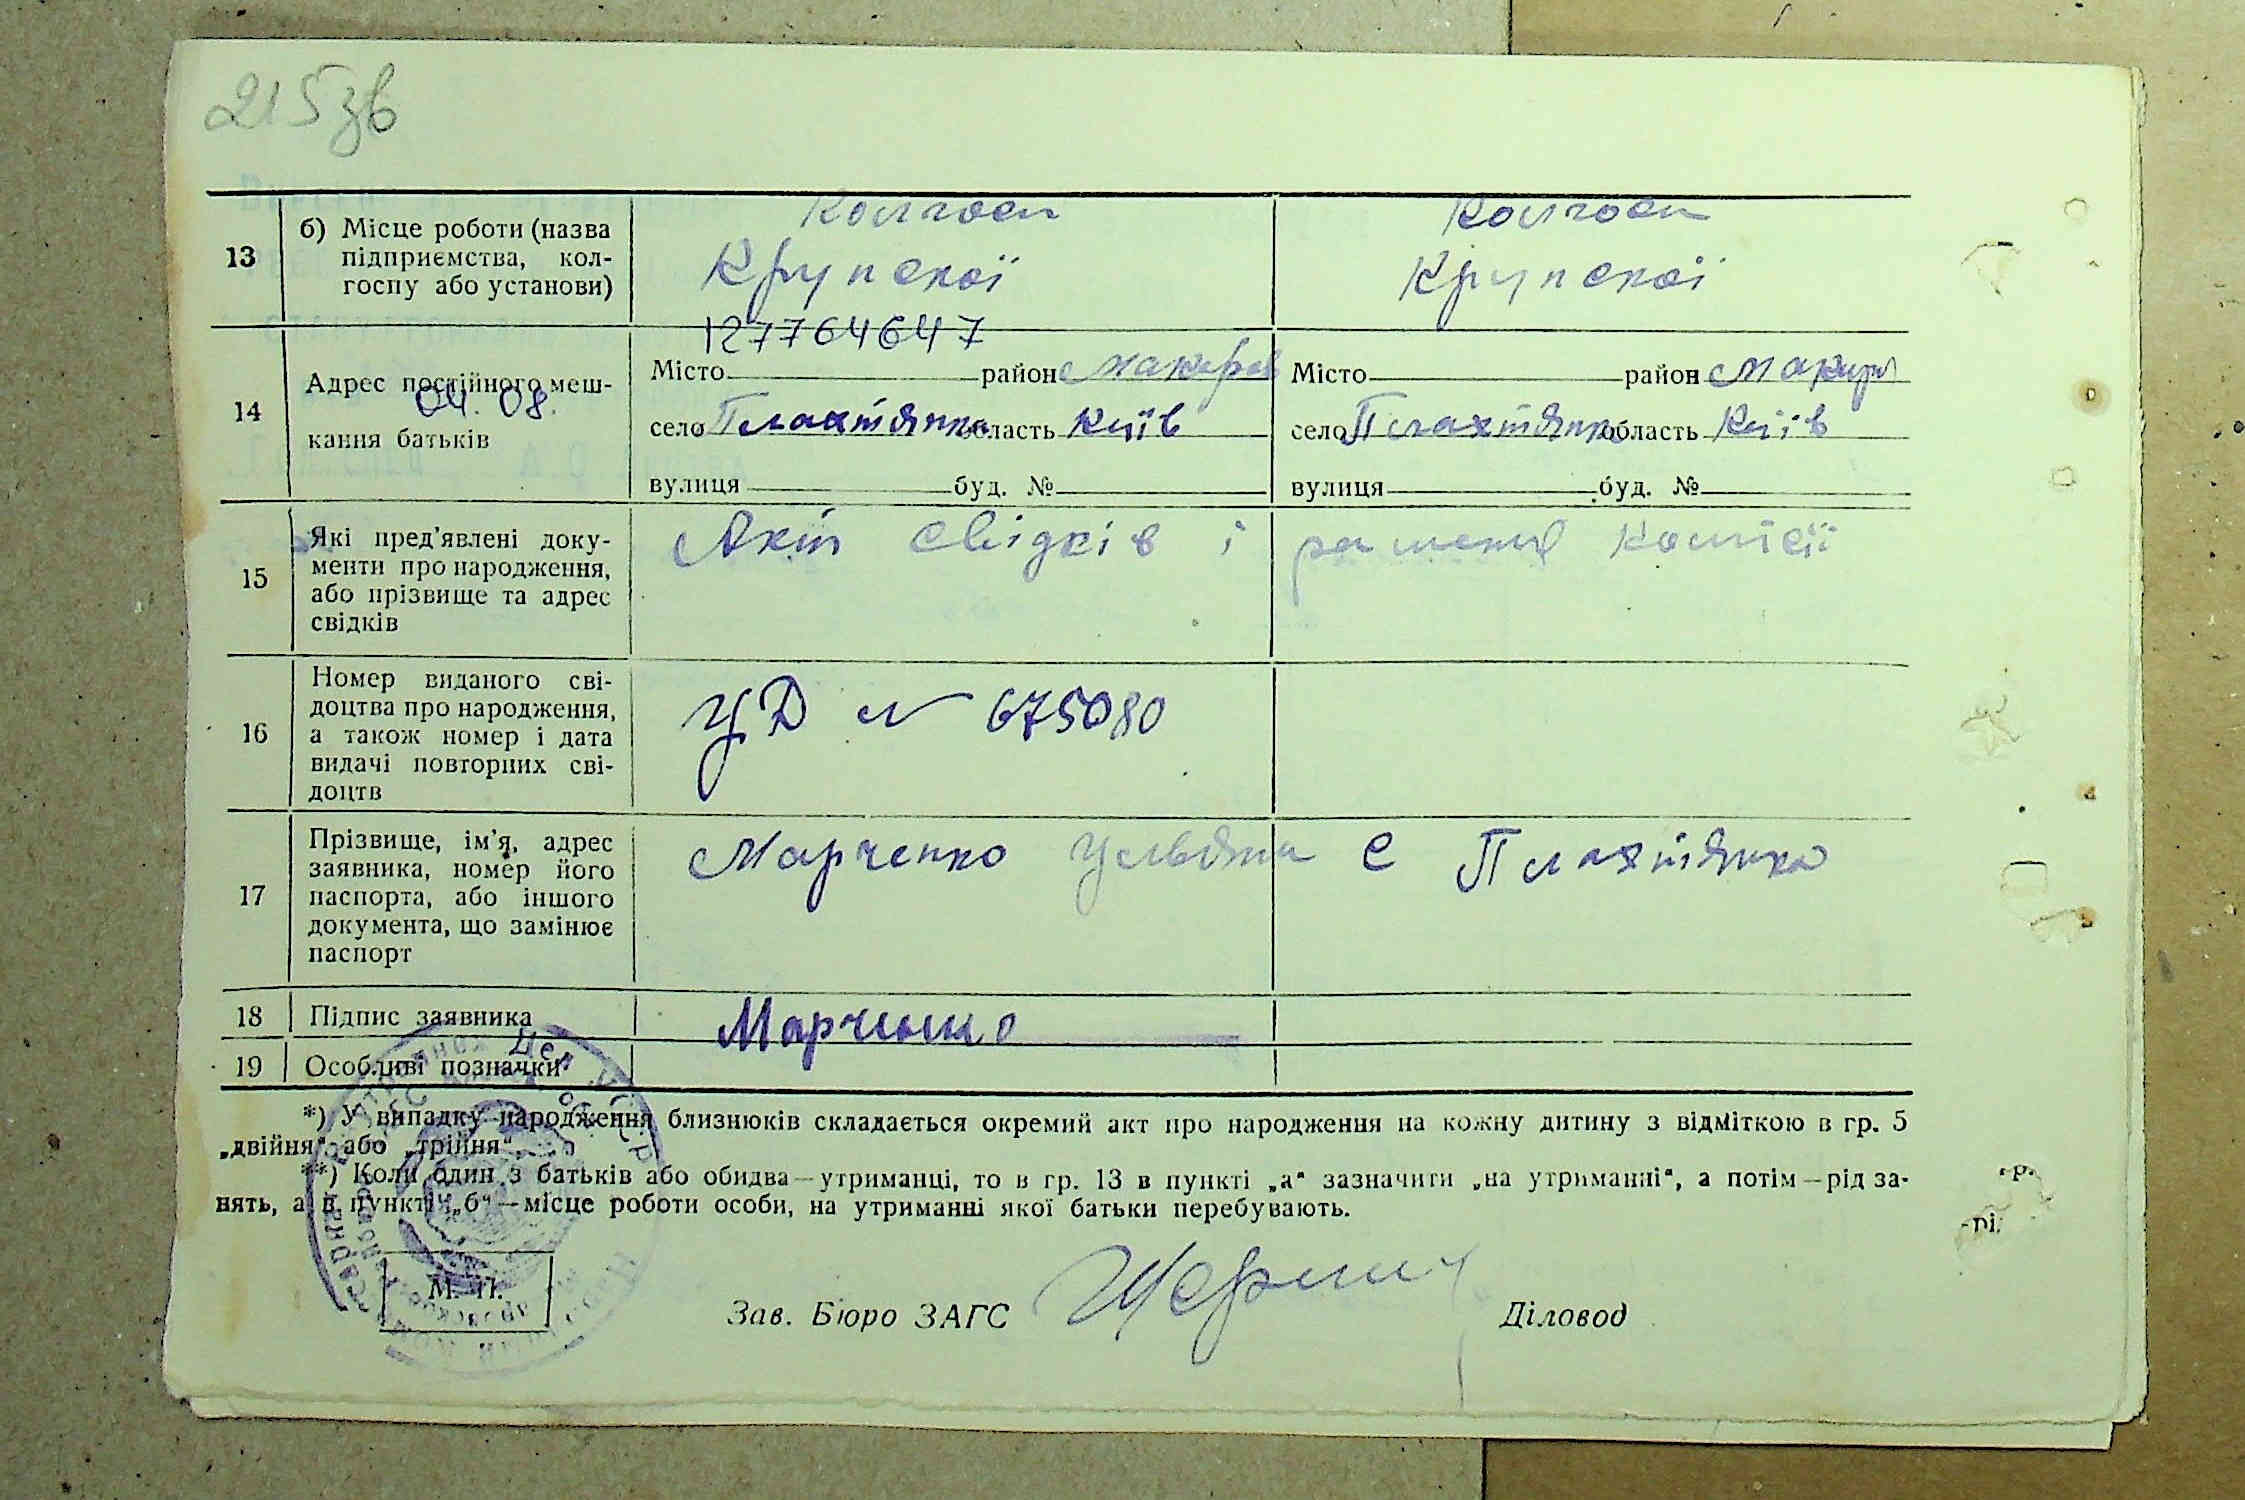 215зв
13
б) Місце роботи (назва
підприємства, кол-
госпу або установи)
Колгосп
Крупскої
Колгосп
Крупскої
127764647
14
Адрес постійного меш-
04. 08.
кання батьків
Місто район Макаров
село Плахтянка область Київ
вулиця буд. №
Місто район Макар
село Плахтянка область Київ
вулиця буд. №
15
Які пред’явлені доку-
менти про народження,
або прізвище та адрес
свідків
Акт свідків і рашения комісії
16
Номер виданого сві-
доцтва про народження,
а також номер і дата
видачі повторних сві-
доцтв
УД № 675080
17
Прізвище, ім’я, адрес
заявника, номер його
паспорта, або іншого
документа, що замінює
паспорт
Марченко Ульяна С Плахтянка
18
Підпис заявника
Марченко
19
Особливі позначки
*) У випадку народження близнюків складається окремий акт про народження на кожну дитину з відміткою в гр. 5
„двійня“ або „трійня“.
**) Коли один з батьків або обидва—утриманці, то в гр. 13 в пункті „а“ зазначити „на утриманні“, а потім—рід за-
нять, а в пункті „б“—місце роботи особи, на утриманні якої батьки перебувають.
М. П.
Зав. Бюро ЗАГС
Діловод